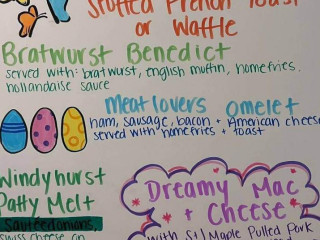 Stuffed French Toast
or Waffle
Bratwurst Benedict
served with: bratwurst, english muffin, homefries,
hollandaise sauce
Meatlovers omelet
ham, sausage, bacon + American cheese
served with homefries + toast
Windyhurst
Patty Melt
Sauteed onions,
swiss cheese on
Dreamy Mac
+ Cheese
with SJ Maple Pulled Pork